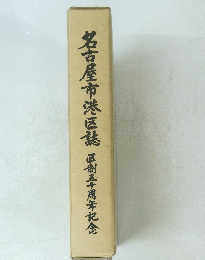 名古屋市港区誌
区制五十周年記念